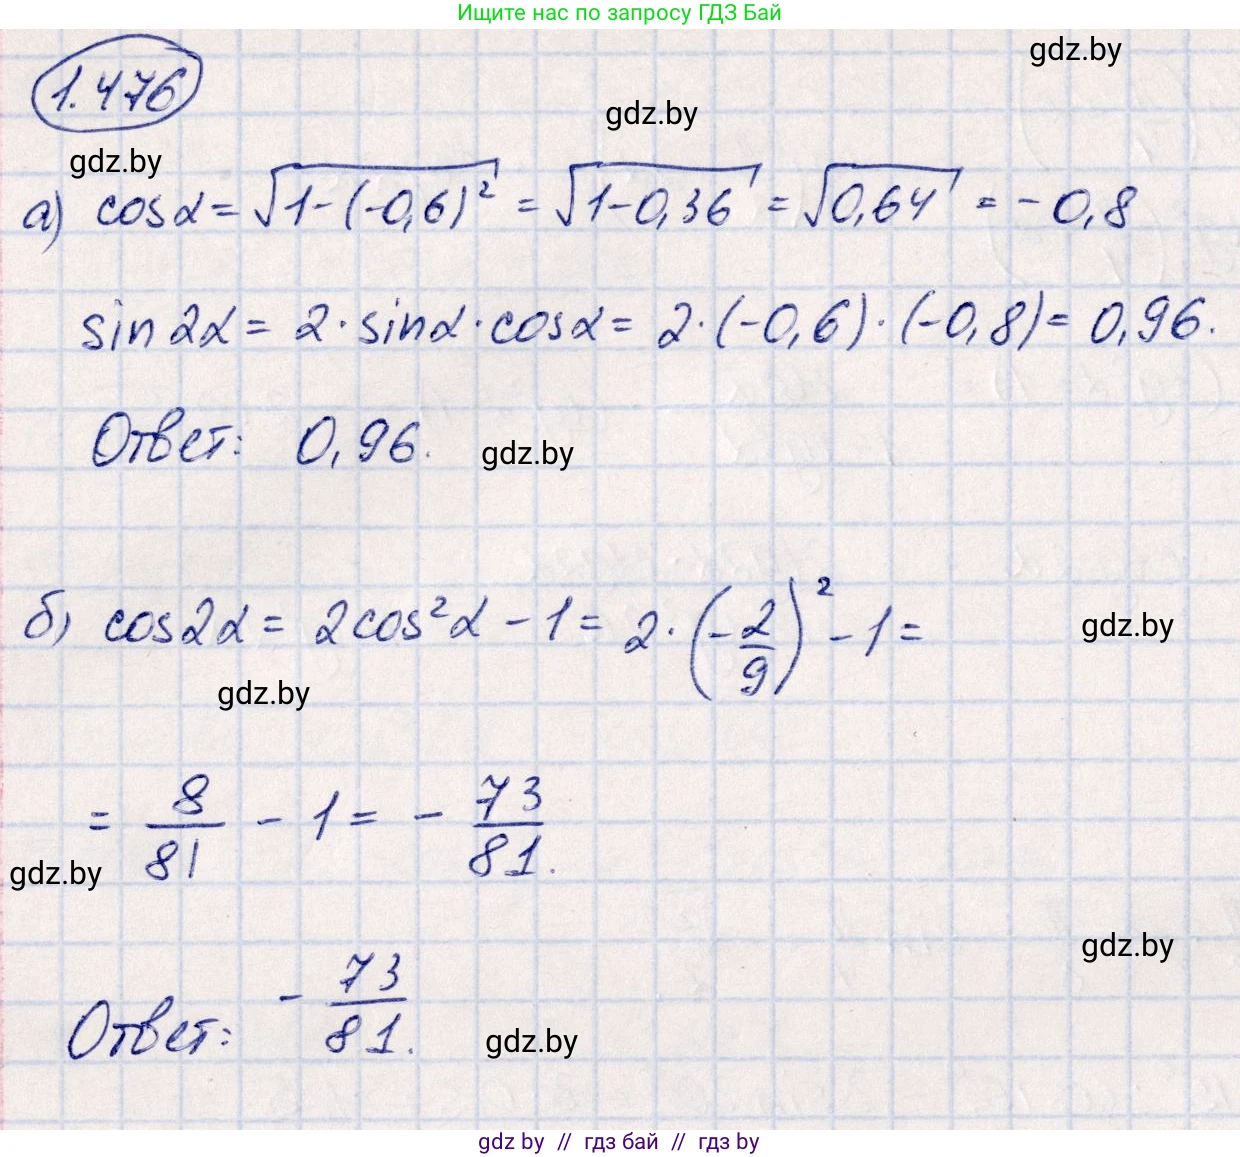 Ищите нас по запросу ГДЗ Бай
gdz.by
1.476
gdz.by
gdz.by
а) cosα = √(1-(-0,6)²) = √(1-0,36) = √(0,64) = -0,8
sin2α = 2·sinα·cosα = 2·(-0,6)·(-0,8) = 0,96.
Ответ: 0,96.
gdz.by
б) cos2α = 2cos²α - 1 = 2·(-2/9)² - 1 =
gdz.by
gdz.by
= 8/81 - 1 = - 73/81.
gdz.by
gdz.by
Ответ: - 73/81.
gdz.by
gdz by // гдз бай // гдз by